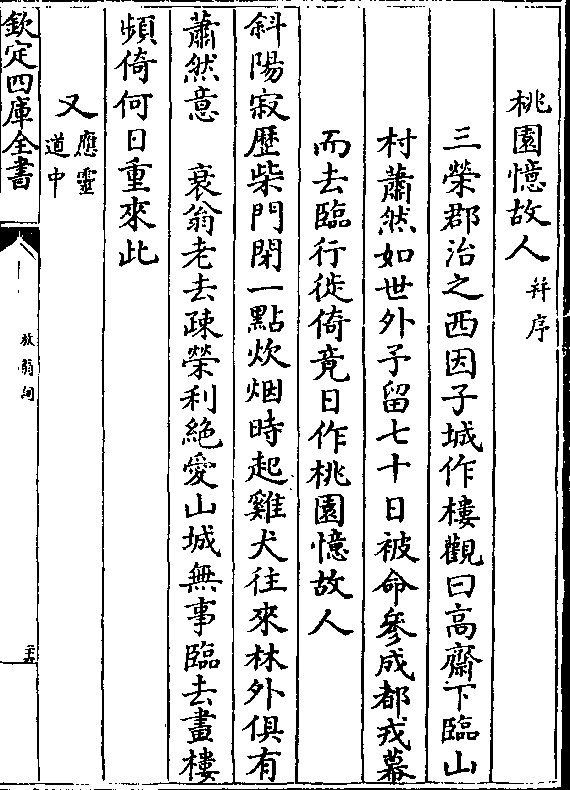 桃園憶故人并序
三榮郡治之西因子城作樓觀曰高齋下臨山
村蕭然如世外予留七十日被命參成都戎幕
而去臨行徙倚竟日作桃園憶故人
斜陽寂歷柴門閉一點炊烟時起雞犬往來林外俱有
蕭然意　衰翁老去疎榮利絶愛山城無事臨去畫樓
頻倚何日重來此
又應靈道中
欽定四庫全書
放翁詞